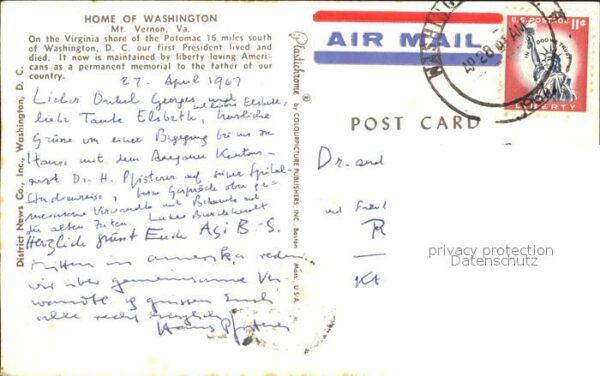 HOME OF WASHINGTON
Mt. Vernon, Va.
On the Virginia shore of the Potomac 16 miles south
of Washington, D. C. our first President lived and
died. It now is maintained by liberty loving Ameri-
cans as a permanent memorial to the father of our
country.
27. April 1967
Lieber Onkel Georges, und
liebe Tante Elsbeth, herzliche
Grüsse von einer Begegnung bei uns zu
Hause mit dem Aargauer Kantons-
arzt Dr. H. Pfisterer auf einer Spital-
Studienreise, beim Gespräche über ge-
meinsame Verwandte und Bekannte und
die alten Zeiten. Lukas Burckhardt
Herzlich grüsst Euch Agi B.-S.
Mitten in Amerika reden
wir über gemeinsame Ver-
wandte & grüssen Euch
alle recht herzlich
Hans Pfisterer
District News Co., Inc., Washington, D. C.
Plastichrome ® by COLOURPICTURE PUBLISHERS, INC. Boston Mass. U.S.A.
AIR MAIL
U.S. POSTAGE 11¢
IN GOD WE TRUST
LIBERTY
POST CARD
Dr. and
und
privacy protection
Datenschutz